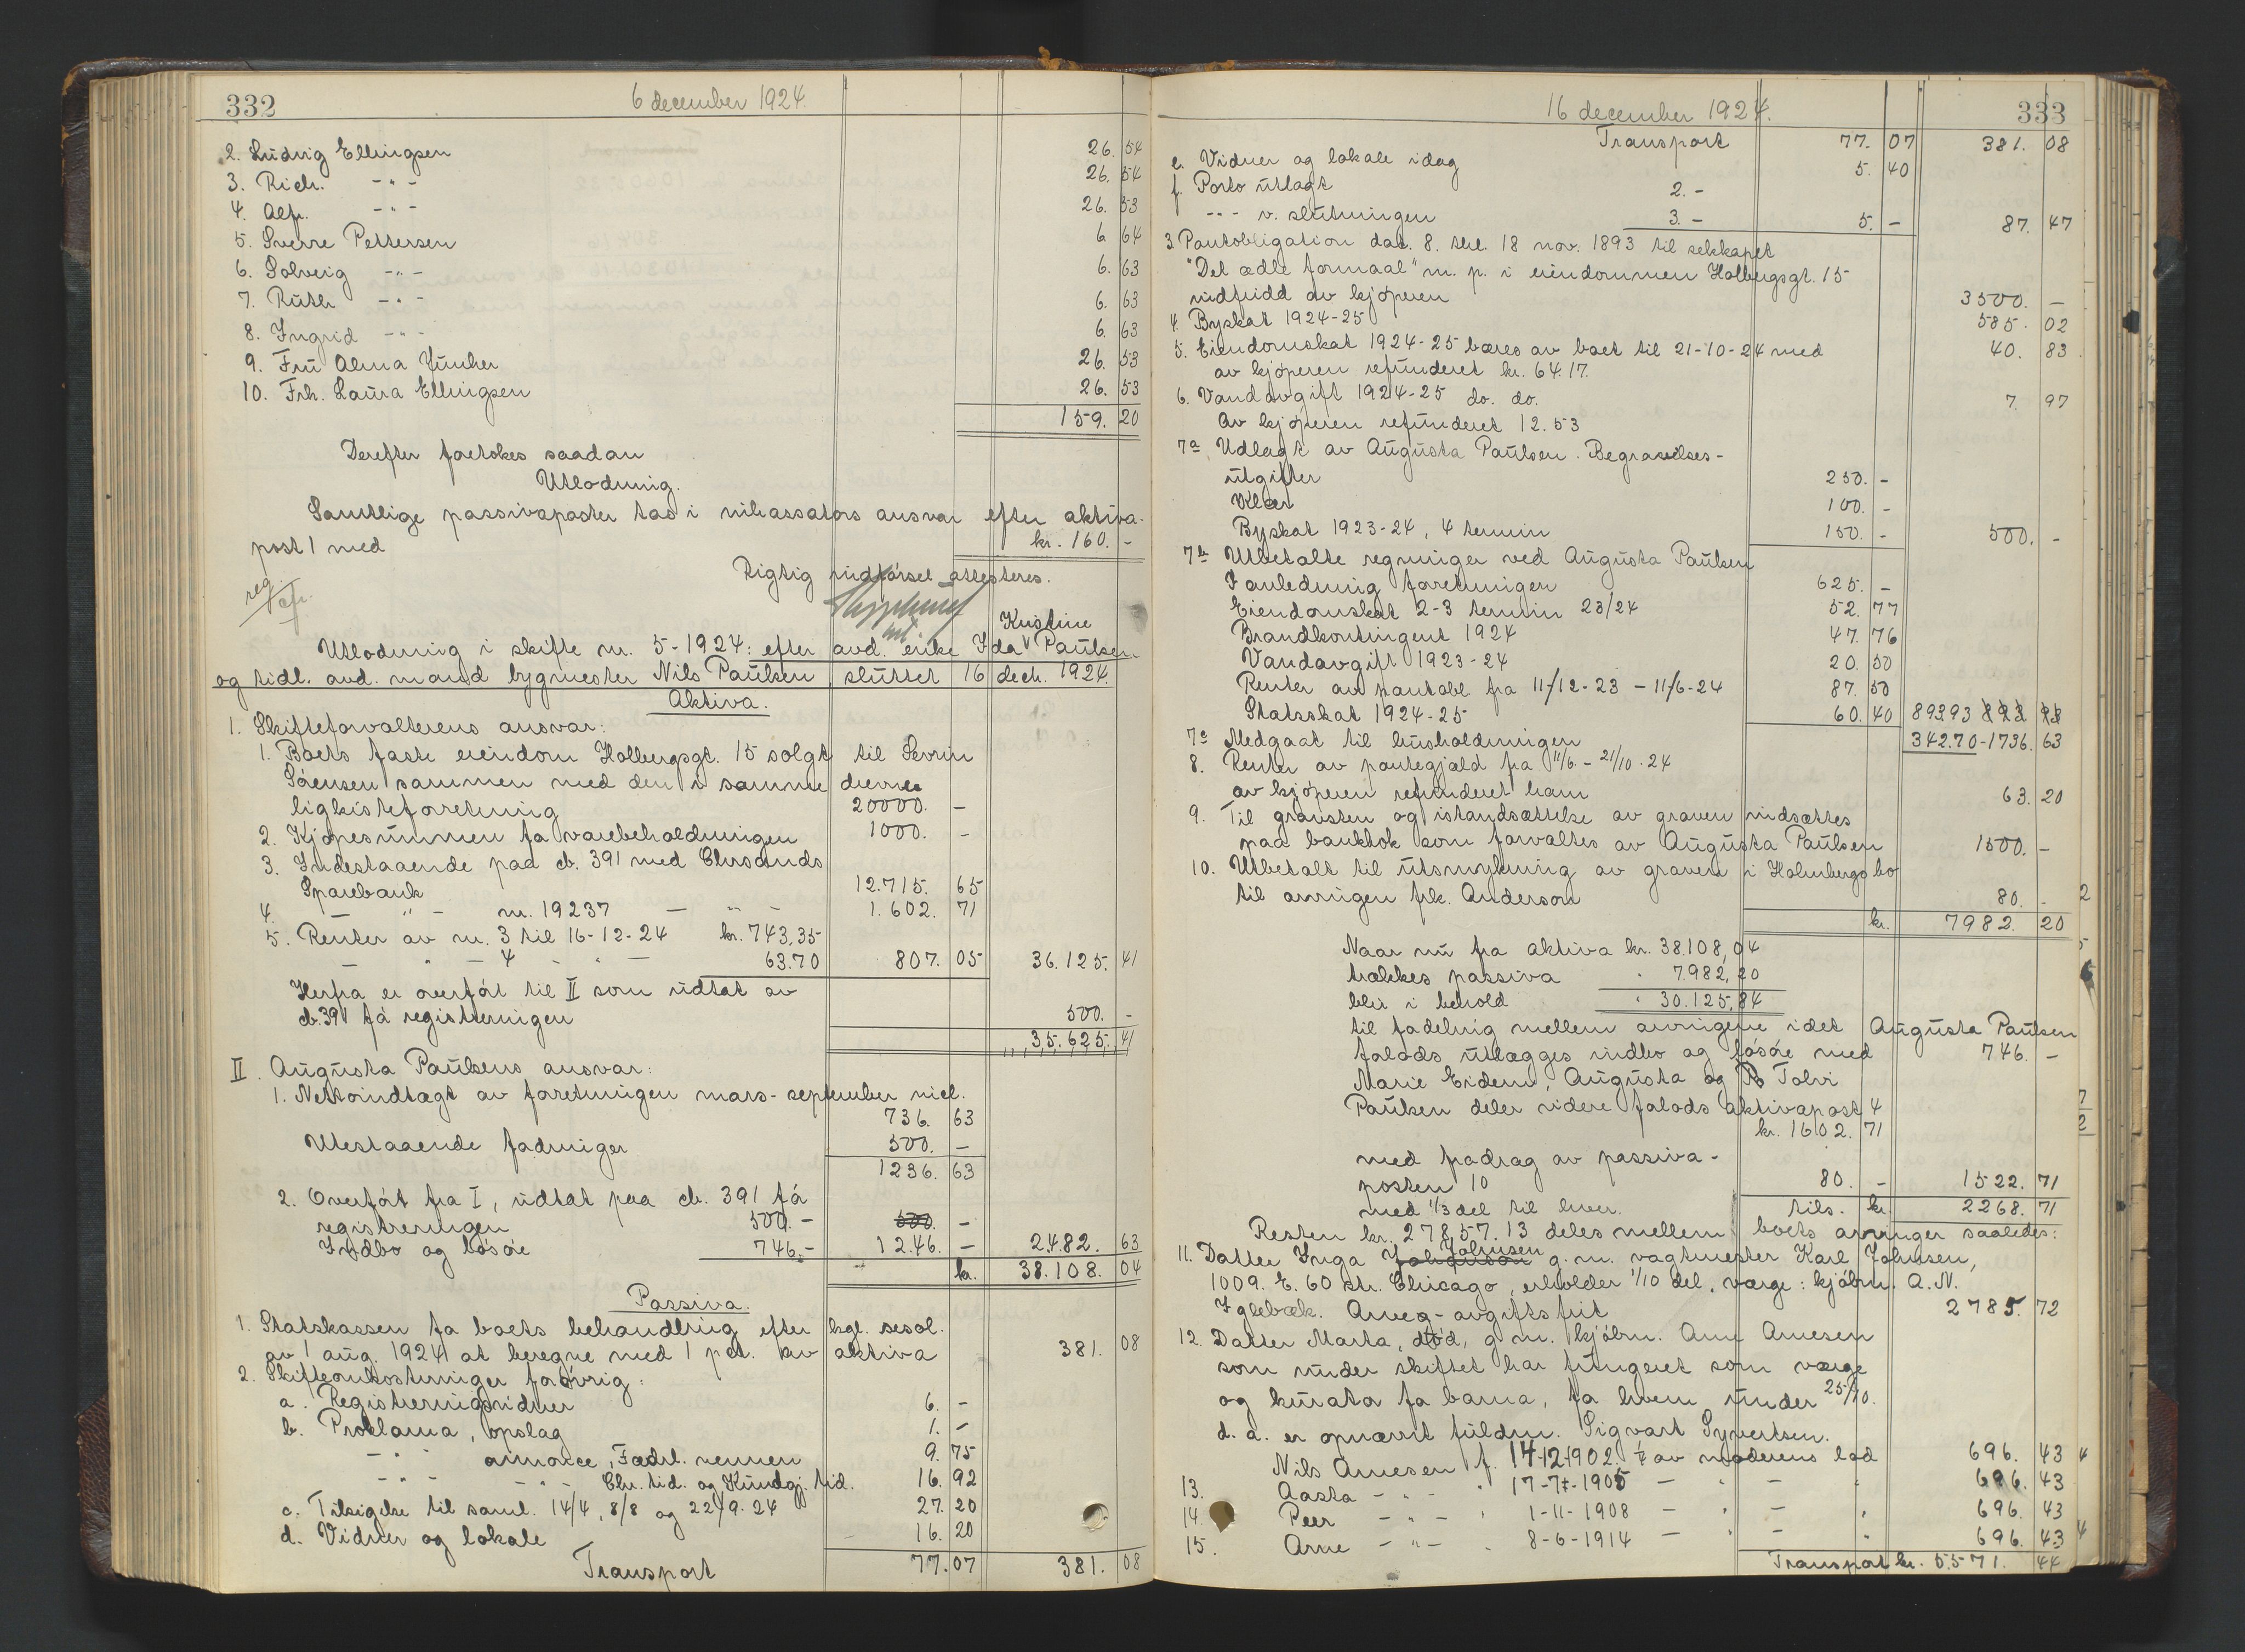 332
6 december 1924.
2. Ludvig Ellingsen 26. 54
3. Rich. -"- 26. 54
4. Alfr. -"- 26. 53
5. Sverre Pettersen 6. 64
6. Solveig -"- 6. 63
7. Ruth -"- 6. 63
8. Ingrid -"- 6. 63
9. Fru Alma Juncker 26. 53
10. Frk. Laura Ellingsen 26. 53
159. 20
Derefter foretokes saadan
Utlodning.
Samtlige passivaposter tas i inkassators ansvar efter aktiva-
post 1 med kr. 160. -
Rigtig indførsel attesteres.
reg.
Kristine
Utlodning i skifte nr. 5-1924: efter avd. enke Ida Paulsen
og tidl. avd. mand bygmester Nils Paulsen sluttet 16 decb. 1924.
Aktiva.
1. Skifteforvalterens ansvar:
1. Boets faste eiendom Holbergsgt. 15 solgt til Sevrin
Sörensen sammen med den i samme drevne
ligkisteforretning 20000. -
2. Kjøpesummen for varebeholdningen 1000. -
3. Indestaaende paa cb. 391 med Chrsands
Sparebank 12.715. 65
4. - " - nr. 19237 - " - 1.602. 71
5. Renter av nr. 3 til 16-12-24 kr. 743,35
- " - 4 - " - 63.70 807. 05 36.125. 41
Herfra er overført til II som uttat av
cb. 391 før registreringen 500. -
35.625. 41
II. Augusta Paulsens ansvar:
1. Nettoindtægt av forretningen mars-september incl.
736. 63
Utestaaende fordringer 500. -
1236. 63
2. Overført fra I, uttat paa cb. 391 før
registreringen 500. - 500. -
Indbo og løsøre 746. - 1246. - 2482. 63
kr. 38.108. 04
Passiva.
1. Statskassen for boets behandling efter kgl. resol.
av 1 aug. 1924 at beregne med 1 pct. av aktiva 381. 08
2. Skifteomkostninger forøvrig:
a. Registreringsvidner 6. -
b. Proklama, opslag 1. -
-"- annonce, Fædrl. vennen 9. 75
-"- -"- Chr. tid. og Kundgj. tid. 16. 92
c. Tilsigelse til saml. 14/4, 8/8 og 22/9-24 27. 20
d. Vidner og lokale 16. 20
Transport 77. 07 381. 08
16 december 1924.
333
Transport 77. 07 381. 08
e. Vidner og lokale idag 5. 40
f. Porto utlagt 2. -
-"- v. slutningen 3. - 5. - 87. 47
3. Pantobligation dat. 8. thl. 18 nov. 1893 til selskapet
"Det ædle formaal" m. p. i eiendommen Holbergsgt. 15
indfridd av kjøperen 3500. -
4. Byskat 1924-25 585. 02
5. Eiendomskat 1924-25 bæres av boet til 21-10-24 med 40. 83
av kjøperen refunderet kr. 64.17.
6. Vandavgift 1924-25 do. do. 7. 97
Av kjøperen refunderet 12.53
7a Udlagt av Augusta Paulsen. Begravelses-
utgifter 250. -
Klær 100. -
Byskat 1923-24, 4 termin 150. - 500. -
7b Utbetalte regninger ved Augusta Paulsen
I anledning forretningen 625. -
Eiendomskat 2-3 termin 23/24 52. 77
Brandkontingent 1924 47. 76
Vandavgift 1923-24 20. 50
Renter av pantobl fra 11/12-23 - 11/6-24 87. 50
Statsskat 1924-25 60. 40 893.93
7c Medgaat til husholdningen 342.70 - 1736. 63
8. Renter av pantegjæld fra 11/6 - 21/10-24
av kjøperen refunderet ham 63. 20
9. Til gravsten og istandsættelse av graven indsættes
paa bankbok som forvaltes av Augusta Paulsen 1500. -
10. Utbetalt til utsmykning av graven i Holmbergs bo
til arvingen frk. Anderson 80. -
kr. 7982. 20
Naar nu fra aktiva kr. 38.108,04
trækkes passiva " 7.982,20
blir i behold " 30.125,84
til fordeling mellem arvingene idet Augusta Paulsen
forlods utlægges indbo og løsøre med 746. -
Marie Eidem, Augusta og Tolvi
Paulsen deler videre forlods aktivapost 4
kr. 1602. 71
med fradrag av passiva-
posten 10 80. - 1522. 71
med 1/3 del til hver. tils. kr. 2268. 71
Resten kr. 27857.13 deles mellem boets arvinger saaledes:
11. Datter Inga Johnsen g. m. vagtmester Karl Johnsen,
1009. E. 60 str. Chicago, erholder 1/10 del. værge: kjøbm. A. N.
Iglebæk. Arveavgiftsfrit 2785. 72
12. Datter Marta, død, g. m. kjøbm. Arne Arnesen
som under skiftet har fungeret som værge
og kurator for barna, for hvem under 25/10.
d. a. er opnævnt fuldm. Sigvart Syvertsen.
Nils Arnesen f. 14-12-1902. 1/4 av moderens lod 696. 43
13. Aasta -"- " 17-7-1905 - " - " 696. 43
14. Peer -"- " 1-11-1908 - " - " 696. 43
15. Arne -"- " 8-6-1914 - " - " 696. 43
Transport kr. 5571. 44